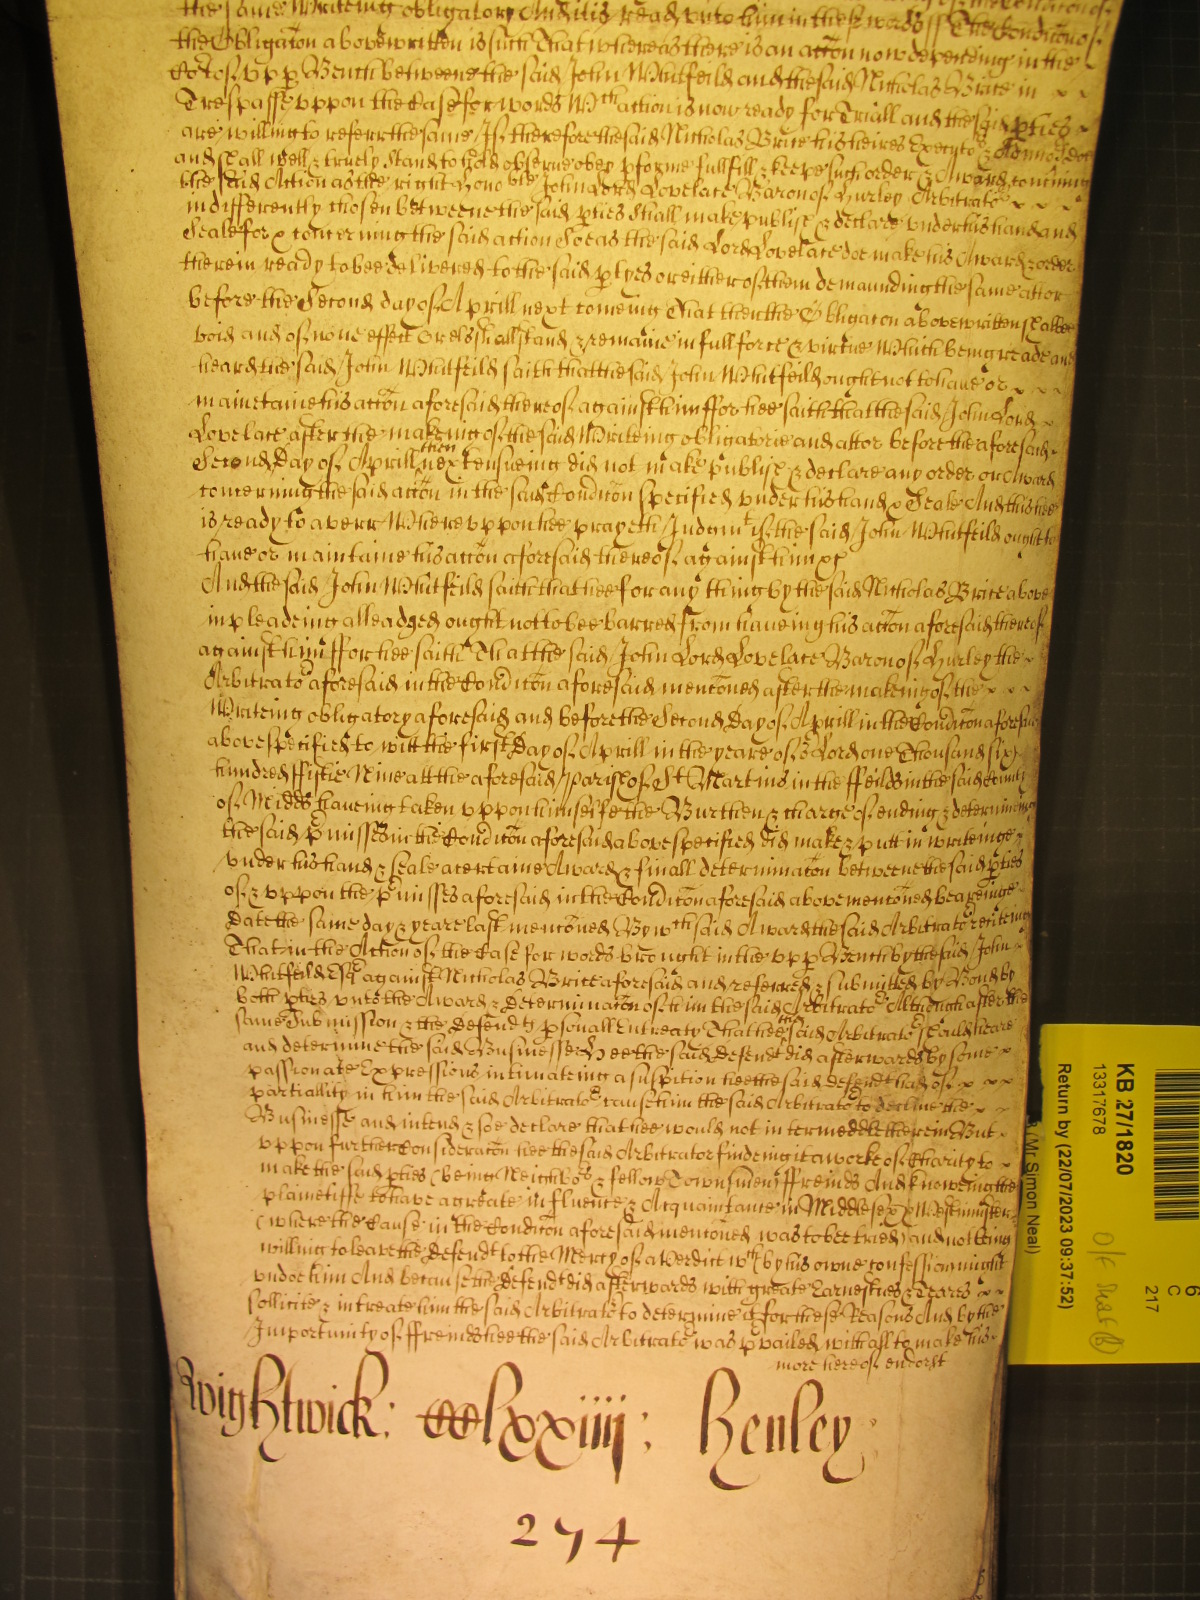 the same Writeing obligatory And it is read unto him in these words ss The Condicon of
the Obligacon abovewritten is such That whereas there is an accon now depending in the
Co͞rt of upp Bench betweene the said John Whitfeild and the said Nicholas Brice in
Trespasse uppon the Case for words Wch action is now ready for Triall and the said pties
are willing to referr the same If therefore the said Nicholas Brice his heires Executors & Administ
and shall well & truely stand to hold observe obey pforme fullfill & keepe such order & Award concerning
the said Action as the right Honoble John Lord Lovelace Baron of Hurley Arbitrator
indifferently chosen betweene the said pties shall make publish & declare under his hand and
Seale for & concerning the said action Soe as the said Lord Lovelace doe make his Award & order
therein ready to bee delivered to the said ptyes or either of them demaunding the same att or
before the Second day of Aprill next comeing That then the Obligacon abovewritten shall bee
void and of none effect Or els shall stand & remaine in full force & virtue Which being reade and
heard the said John Whitfeild saith that the said John Whitfeild ought not to have or
maintaine his accon aforesaid thereof against him ffor hee saith that the said John Lord
Lovelace after the makeing of the said Writeing obligatorie and att or before the aforesaid
Second Day of Aprill then next ensueing did not make publish & declare any order or Award
concerning the said accon in the said Condicon specified under his hand & Seale And this hee
is ready to averr Whereuppon hee prayeth Judgmt if the said John Whitfeild ought to
have or maintaine his accon aforesaid thereof against him &c
And the said John Whitfeild saith that hee for any thing by the said Nicholas Brice above
in pleadeing alleadged ought not to bee barred from haveing his accon aforesaid thereof
against him ffor hee saith That the said John Lord Lovelace Baron of Hurley the
Arbitrator aforesaid in the Condicon aforesaid menconed after the makeing of the
Writeing obligatory aforesaid and before the Second Day of Aprill in the Condicon aforesaid
above specified to witt the first Day of Aprill in the yeare of or Lord one Thousand six
hundred ffiftie Nine att the aforesaid parish of St Martins in the ffeilds in the said County
of Midds haveing taken uppon himselfe the Burthen & charge of ending & determining
the said pmisses in the Condicon aforesaid above specified did make & putt in writeinge
under his hand & seale a certaine Award & finall determinacon betweene the said pties
of & uppon the pmisses aforesaid in the Condicon aforesaid above menconed beareinge
Date the same day & yeare last menconed By wch said Award the said Arbitrator reciteing
That in the Action of the Case for words brought in the upp Bench by the said John
Whitfeild Esqr against Nicholas Brice aforesaid and referred & submitted by Bond by
both pties unto the Award & Determinacon of him the said Arbitrator Although after the
same Submission & the Defendts psonall Entreaty That hee the said Arbitrator should heare
and determine the said Businesse Hee the said Defendt did afterwards by some
passionate Expressions intimateing a suspition hee the said defendt had of
partiallity in him the said Arbitrator cause him the said Arbitrator to decline the
Businesse and intend & soe declare that hee would not intermeddle therein But
uppon further Consideracon hee the said Arbitrator findeing it a worke of Charity to
make the said pties (being Neighbors & fellow Townsmen) ffreinds And knoweing the
plaintiffe to have a greate influence & Acquaintance in Middlesex & Westminster
(where the Cause in the Condicon aforesaid menconed was to bee tried) and not being
willing to leave the Defendt to the Mercy of a Verdict wch by his owne confession might
undoe him And because the Defendt did afterwards with greate Earnestnes & Teares
sollicite & intreate him the said Arbitrator to determine it for these Reasons And by the
Importunity of ffreinds hee the said Arbitrator was pvailed withall to make this
more hereof endorst
Wightwick: CClxxiiij: Henley
274
KB 27/1820
13317678
Return by (22/07/2023 09:37:52)
Mr Simon Neal)
6
C
217